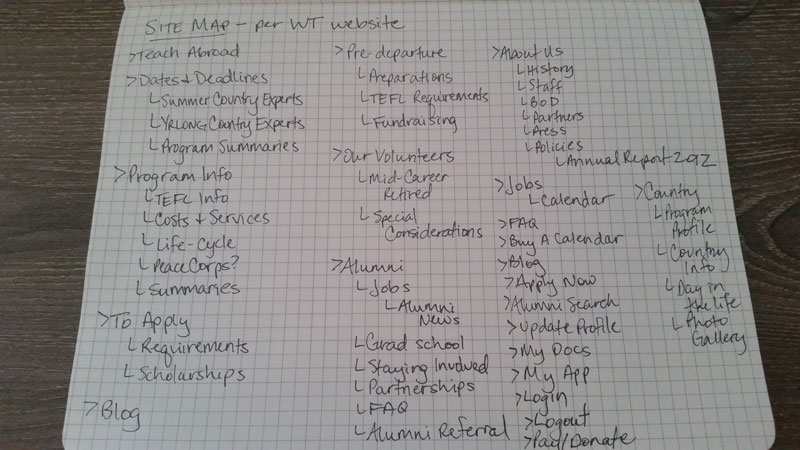 SITE MAP - per WT website
>Teach Abroad
>Dates & Deadlines
└Summer Country Experts
└YRLONG Country Experts
└Program Summaries
>Program Info
└TEFL Info
└Costs & Services
└Life-Cycle
└Peace Corps?
└Summaries
>To Apply
└Requirements
└Scholarships
>Blog
>Pre-departure
└Preparations
└TEFL Requirements
└Fundraising
>Our Volunteers
└Mid-Career
Retired
└Special
Considerations
>Alumni
└Jobs
└Alumni
News
└Grad school
└Staying Involved
└Partnerships
└FAQ
└Alumni Referral
>About Us
└History
└Staff
└BOD
└Partners
└Press
└Policies
└Annual Report 2012
>Jobs
└Calendar
>FAQ
>Buy A Calendar
>Blog
>Apply Now
>Alumni Search
>Update Profile
>My Docs
>My App
>Login
>Logout
>Pay/Donate
>Country
└Program
Profile
└Country
Info
└Day in
the life
└Photo
Gallery